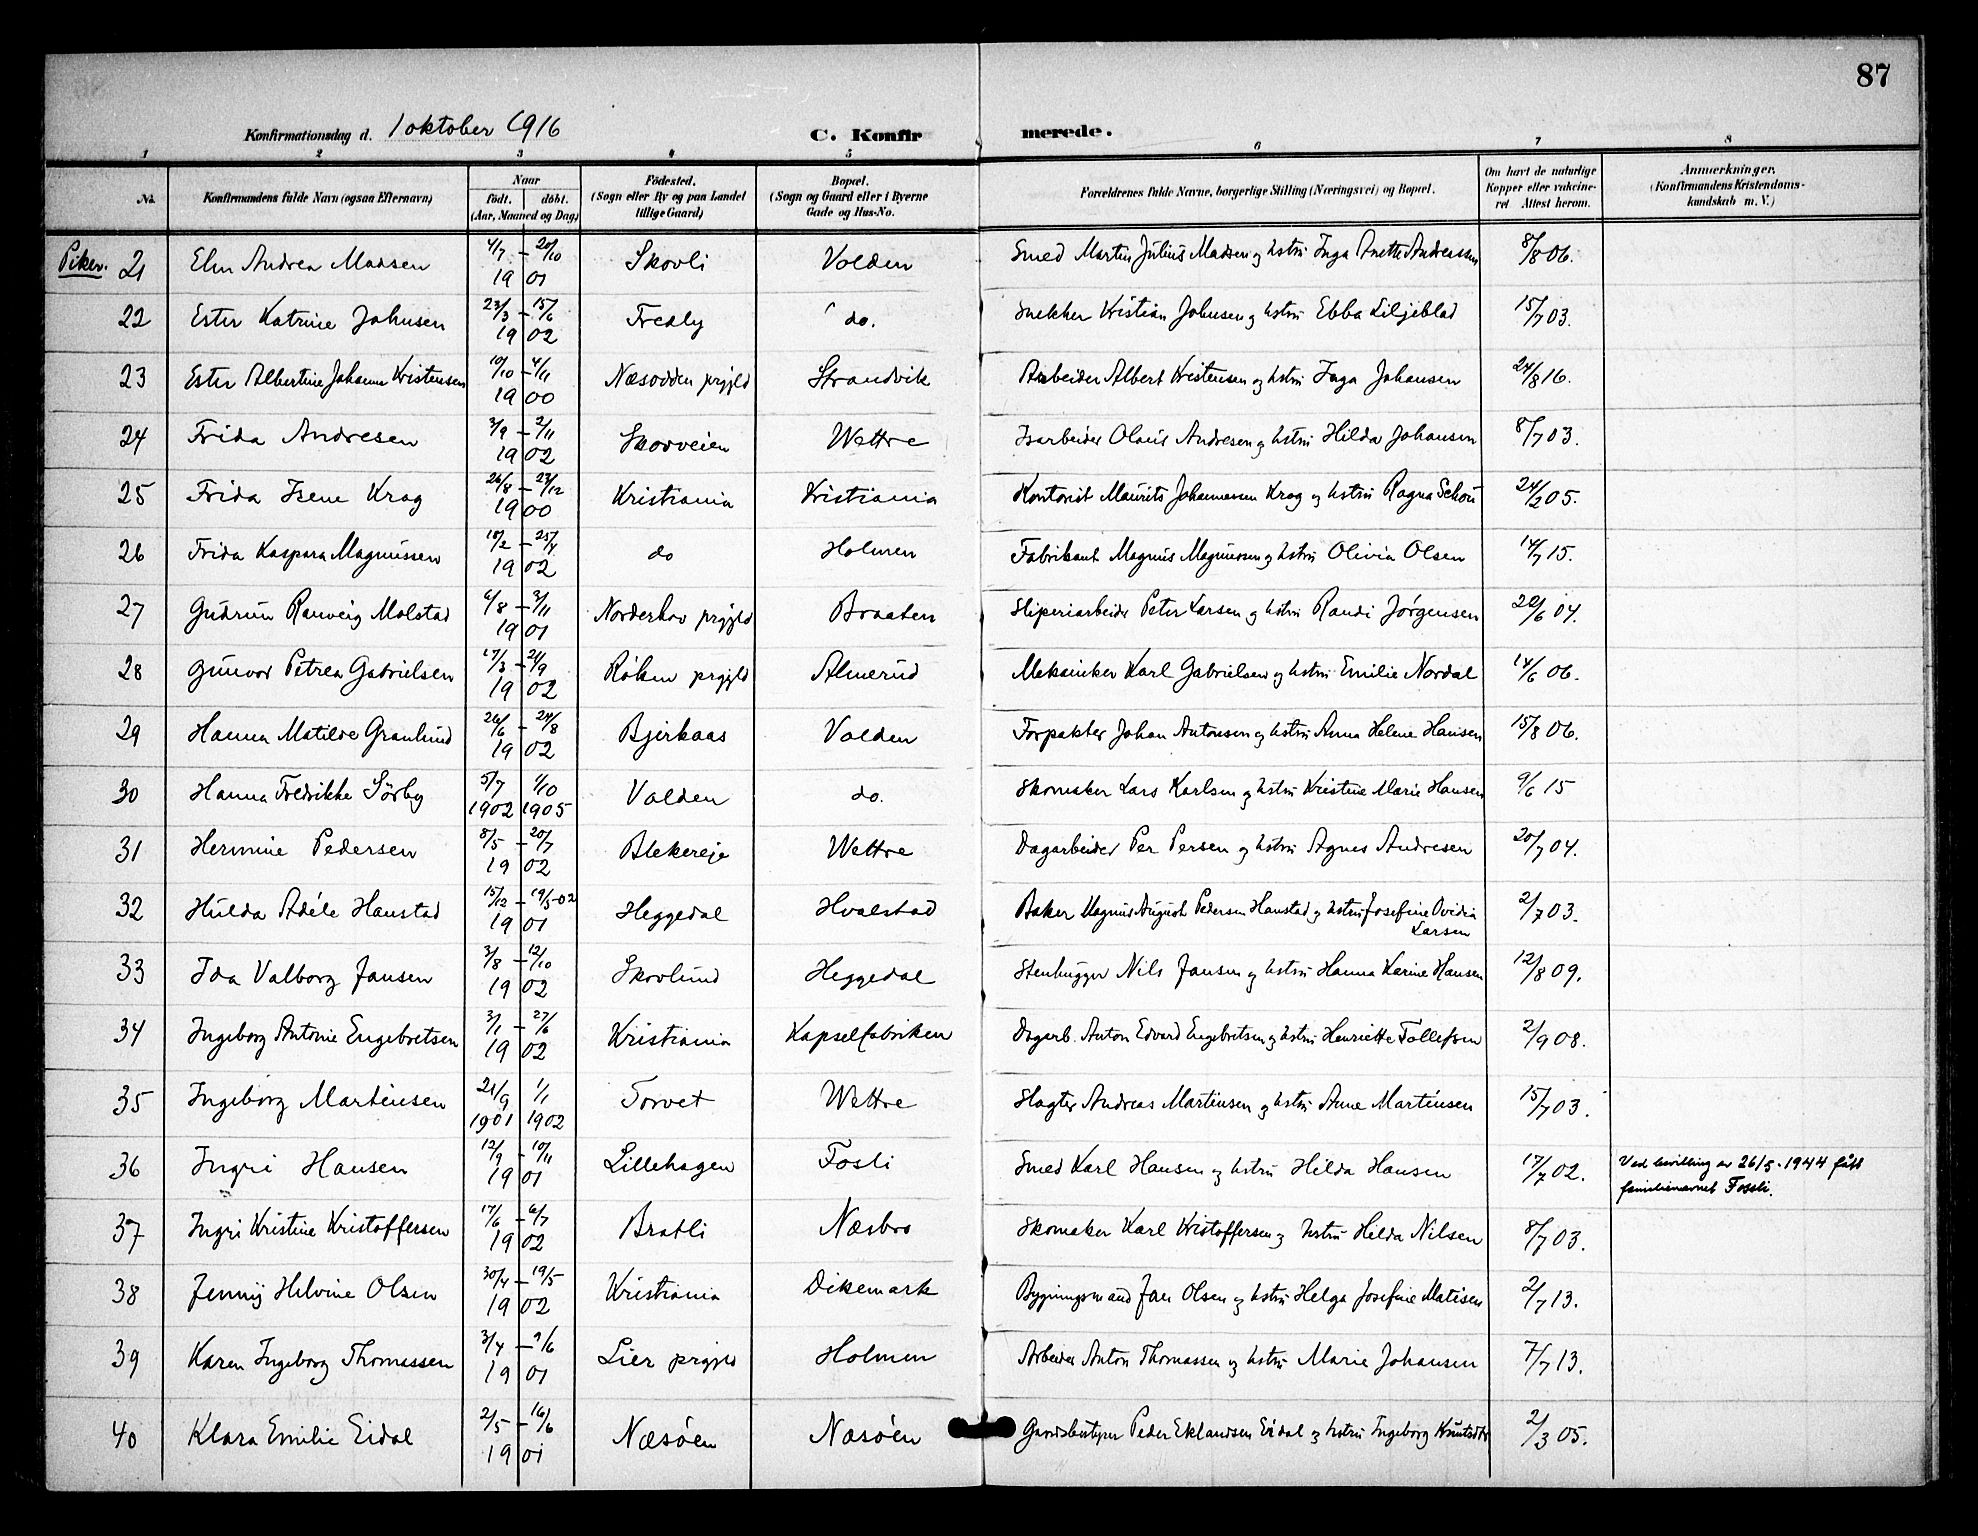 87
Konfirmationsdag d. 1 oktober 1916 C. Konfirmerede.
1 2 3 4 5 6 7 8
No. Konfirmandens fulde Navn (ogsaa Efternavn) Naar født. døbt. (Aar, Maaned og Dag) Fødested. (Sogn eller By og paa Landet tillige Gaard) Bopæl. (Sogn og Gaard eller i Byerne Gade og Hus-No. Forældrenes fulde Navne, borgerlige Stilling (Næringsvei) og Bopæl. Om havt de naturlige Kopper eller vakcineret Attest herom. Anmærkninger. (Konfirmandens Kristendomskundskab m. V.)
Piker. 21 Elen Andrea Madsen 4/7 – 20/10 1901 Skovli Volden Smed Martin Julius Madsen og hstru Inga Anette Andreassen 8/8 06.
22 Ester Katrine Johnsen 23/3 – 15/6 1902 Fredly do. Snekker Kristian Johnsen og hstru Ebba Liljeblad 15/7 03.
23 Ester Albertine Johanne Kristensen 10/10 – 4/11 1900 Næsodden prgjld Strandvik Arbeider Albert Kristensen og hstru Inga Johansen 24/8 16.
24 Frida Andresen 3/9 – 2/11 1902 Skovveien Wettre Isarbeider Olaus Andresen og hstru Hilda Johansen 8/7 03.
25 Frida Irene Krag 26/8 – 23/12 1900 Kristiania Kristiania Kontorist Maurits Johannessen Krag og hstru Ragna Schou 24/2 05.
26 Frida Kaspara Magnussen 18/2 – 25/4 1902 do Holmen Fabrikant Magnus Magnussen og hstru Olivia Olsen 14/7 15.
27 Gudrun Ranveig Molstad 6/8 – 3/11 1901 Norderhov prgjld Braaten Sliperiarbeider Peter Larsen og hstru Randi Jørgensen 20/6 04.
28 Gunvor Petrea Gabrielsen 17/3 – 21/9 1902 Røken prgjld Almerud Mekaniker Karl Gabrielsen og hstru Emilie Nordal 14/6 06.
29 Hanna Matilde Granlund 26/6 – 24/8 1902 Bjerkaas Volden Forpakter Johan Antonsen og hstru Anna Helene Hansen 15/8 06.
30 Hanna Fredrikke Sörby 5/7 1902 1/10 1905 Volden do. Skomaker Lars Karlsen og hstru Kristine Marie Hansen 9/6 15
31 Hermine Pedersen 8/5 – 20/7 1902 Blekereje Wettre Dagarbeider Per Persen og hstru Agnes Andresen 20/7 04.
32 Hulda Adéle Hanstad 15/12 – 19/5-02 1901 Heggedal Hvalstad Baker Magnus August Pedersen Hanstad og hstru Josefine Ovidia Larsen 2/7 03.
33 Ida Valborg Jansen 3/8 – 12/10 1902 Skovlund Heggedal Stenhugger Nils Jansen og hstru Hanna Karine Hansen 12/8 09.
34 Ingeborg Antonie Engebretsen 3/1 – 27/6 1902 Kristiania Kapselfabriken Dagarb. Anton Edvard Engebretsen og hstru Henriette Tollefsen 2/9 08.
35 Ingeborg Martinsen 21/9 1901 1/1 1902 Torvet Wettre Slagter Andreas Martinsen og hstru Anne Martinsen 15/7 03.
36 Ingri Hansen 12/9 – 10/11 1901 Lillehagen Fosli Smed Karl Hansen og hstru Hilda Hansen 17/7 02. Ved bevilling av 26/5-1944 fått familienavnet Fossli.
37 Ingri Kristine Kristoffersen 17/6 – 6/7 1902 Bratli Næsbro Skomaker Karl Kristoffersen og hstru Hilda Nilsen 8/7 03.
38 Jenny Helvine Olsen 30/4 – 19/5 1902 Kristiania Dikemark Bygningsmand Jan Olsen og hstru Helga Josefine Matisen 2/7 13.
39 Karen Ingeborg Thomassen 3/4 – 9/6 1901 Lier prgjld Holmen Arbeider Anton Thomassen og hstru Marie Johansen 7/7 13.
40 Klara Emilie Eidal 2/5 – 16/6 1901 Næsöen Næsöen Gaardsbestyrer Peder Eklandsen Eidal og hstru Ingeborg Knutsdtr 2/3 05.